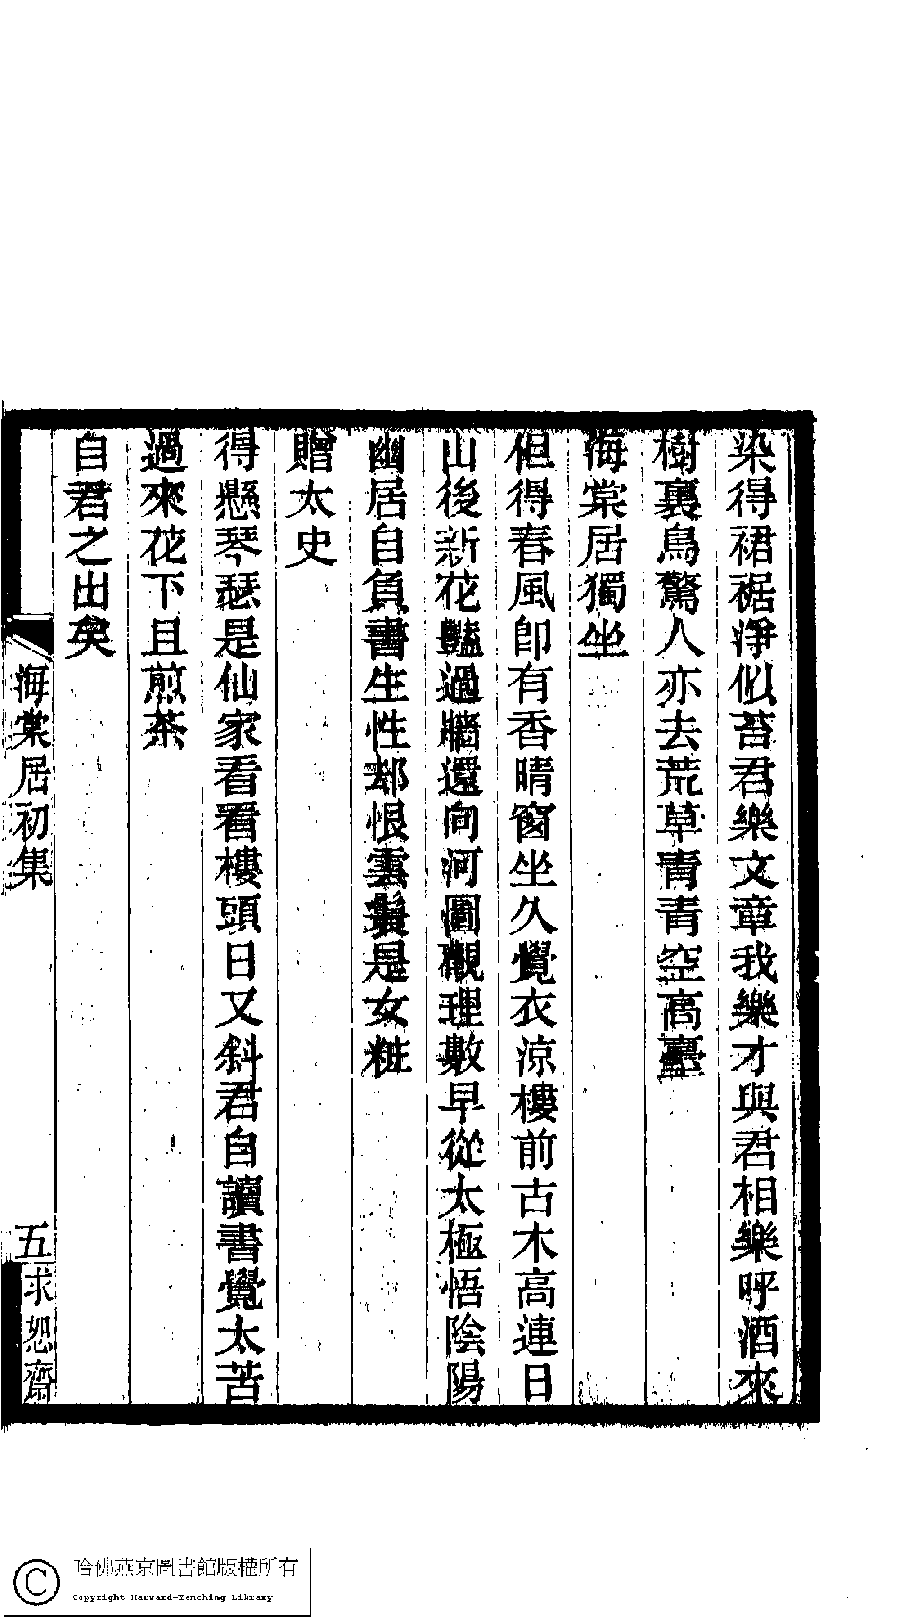 染得裙裾淨似苔君樂文章我樂才與君相樂呼酒來
樹裏鳥驚人亦去荒草青青空高臺
海棠居獨坐
但得春風卽有香晴窗坐久覺衣涼樓前古木高連日
山後新花豔過牆還向河圖觀理數早從太極悟陰陽
幽居自負書生性却恨雲鬟是女粧
贈太史
得懸琴瑟是仙家看看樓頭日又斜君自讀書覺太苦
過來花下且煎茶
自君之出矣
海棠居初集
五
求恕齋
哈佛燕京圖書館版權所有
Copyright Harvard-Yenching Library